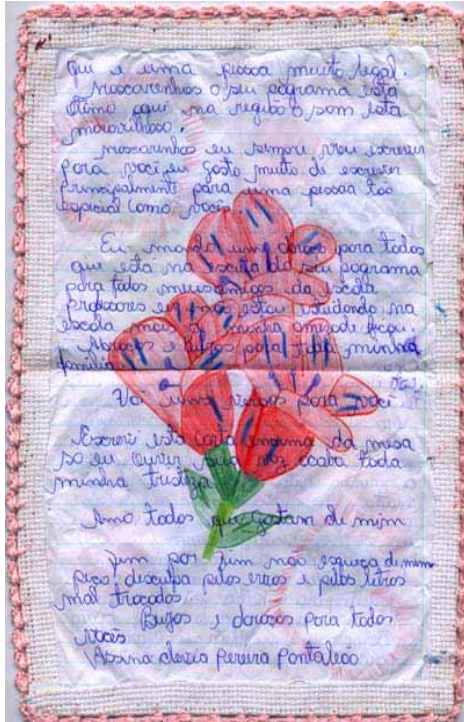 que é uma pessoa muito legal.
mascarenhos o seu pograma esta
ótimo aqui na região o som esta
maravilhoso.
mascarenhos eu sempre vou escrever
para você, eu gosto muito de escrever
principalmente para uma pessoa tão
especial como você
Eu mando um abraço para todos
que está na escuta do seu pograma
para todos meus amigos da escola
professores eu não estou estudando na
escola mais a minha amizade ficou.
Abraços e beijos para toda minha
família
Vai uns versos para você
Escrevi esta carta encima da mesa
so eu ouvir sua voz acaba toda
minha tristeza
Amo todos que gostam de mim
Fim por fim não esqueça de mim
peço disculpa pelos erros e pelos litros
mal traçados
Bejos e abraços para todos
vocês
Assina: cleria Pereira Pantaleão